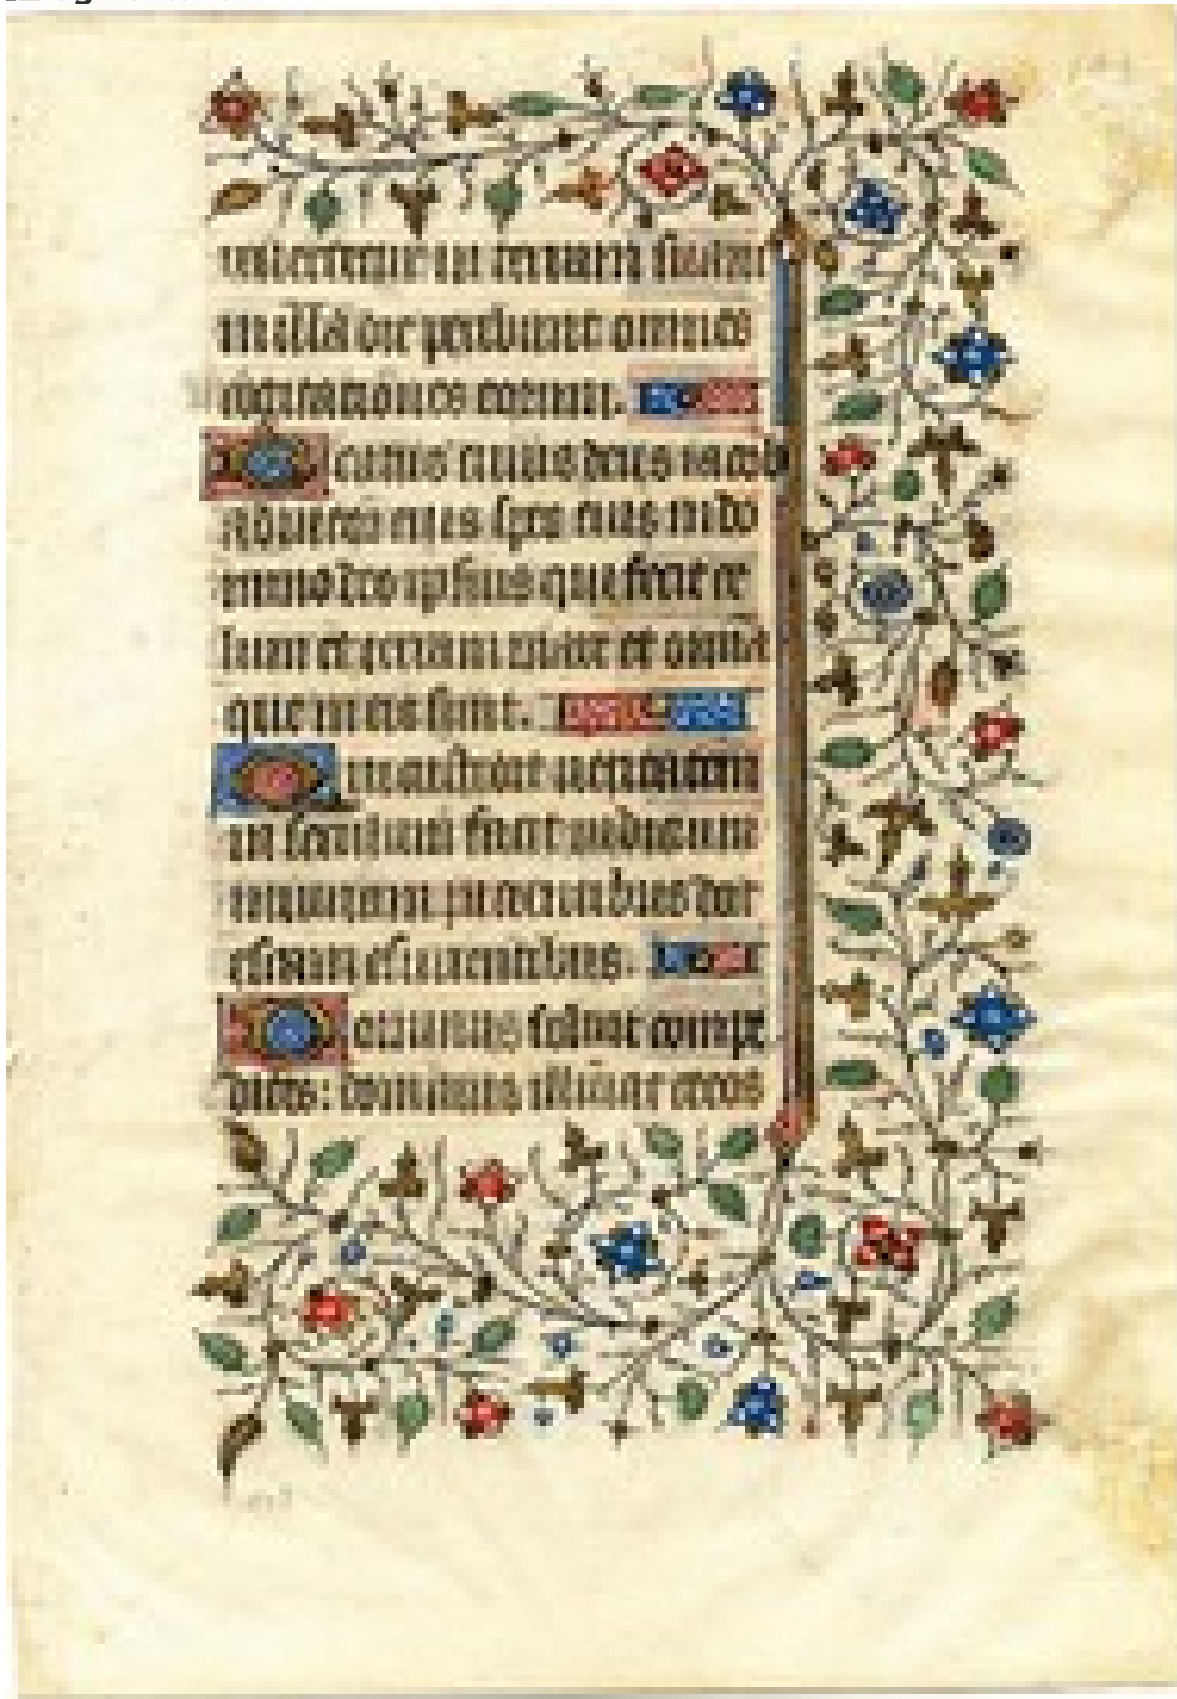 revertetur in terram suam
in illa die peribunt omnes
cogitationes eorum.
Beatus cuius deus iacob
adiutor eius spes eius in do
mino deo ipsius qui fecit ce
lum et terram mare et omnia
que in eis sunt.
Qui custodit veritatem
in seculum facit iudicium
iniuriam pacientibus dat
escam esurientibus.
Dominus solvit compe
ditos: dominus illuminat cecos